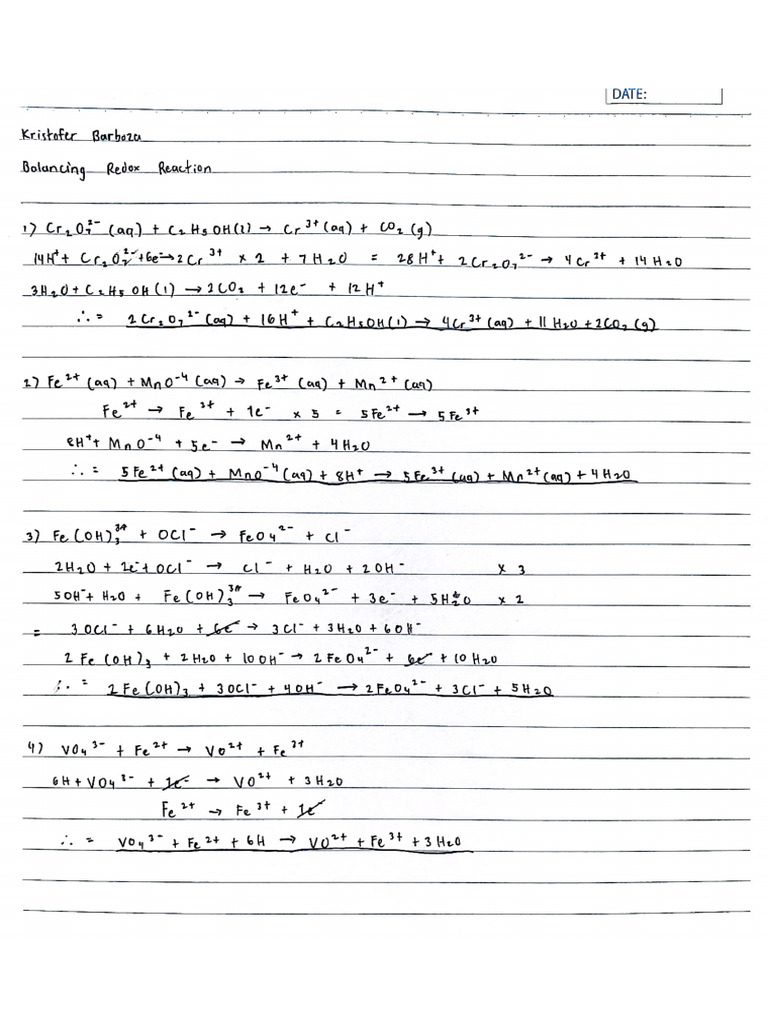 DATE:
Kristofer Barboza
Balancing Redox Reaction
1) Cr₂O₇²⁻ (aq) + C₂H₅OH(l) → Cr³⁺(aq) + CO₂(g)
14H⁺ + Cr₂O₇²⁻ + 6e⁻ → 2Cr³⁺ × 2 + 7H₂O = 28H⁺ + 2Cr₂O₇²⁻ → 4Cr³⁺ + 14H₂O
3H₂O + C₂H₅OH(l) → 2CO₂ + 12e⁻ + 12H⁺
∴ = 2Cr₂O₇²⁻(aq) + 16H⁺ + C₂H₅OH(l) → 4Cr³⁺(aq) + 11H₂O + 2CO₂(g)
2) Fe²⁺(aq) + MnO⁻⁴(aq) → Fe³⁺(aq) + Mn²⁺(aq)
Fe²⁺ → Fe³⁺ + 1e⁻ × 5 = 5Fe²⁺ → 5Fe³⁺
8H⁺ + MnO⁻⁴ + 5e⁻ → Mn²⁺ + 4H₂O
∴ = 5Fe²⁺(aq) + MnO⁻⁴(aq) + 8H⁺ → 5Fe³⁺(aq) + Mn²⁺(aq) + 4H₂O
3) Fe(OH)₃ + OCl⁻ → FeO₄²⁻ + Cl⁻
2H₂O + 2e⁻ + OCl⁻ → Cl⁻ + H₂O + 2OH⁻ × 3
5OH⁻ + H₂O + Fe(OH)₃ → FeO₄²⁻ + 3e⁻ + 5H₂O × 2
= 3OCl⁻ + 6H₂O + 6e⁻ → 3Cl⁻ + 3H₂O + 6OH⁻
2Fe(OH)₃ + 2H₂O + 10OH⁻ → 2FeO₄²⁻ + 6e⁻ + 10H₂O
∴ = 2Fe(OH)₃ + 3OCl⁻ + 4OH⁻ → 2FeO₄²⁻ + 3Cl⁻ + 5H₂O
4) VO₄³⁻ + Fe²⁺ → VO²⁺ + Fe³⁺
6H + VO₄³⁻ + 1e⁻ → VO²⁺ + 3H₂O
Fe²⁺ → Fe³⁺ + 1e⁻
∴ = VO₄³⁻ + Fe²⁺ + 6H → VO²⁺ + Fe³⁺ + 3H₂O